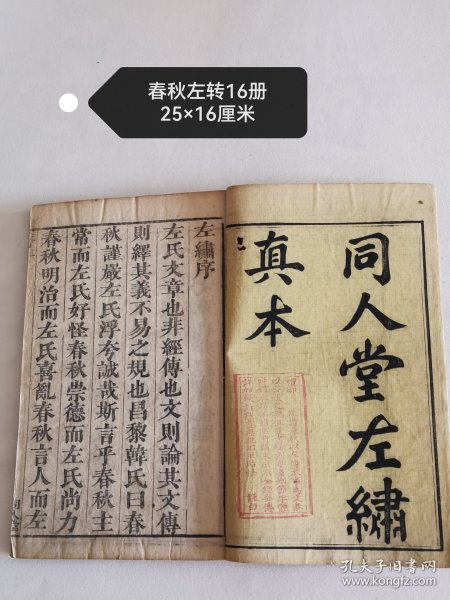 春秋左转16册
25×16厘米
同人堂左繡
真本
左繡序
左氏文章也非經傳也文則論其文傳
則繹其義不易之規也昌黎韓氏曰春
秋謹嚴左氏浮夸誠哉斯言乎春秋主
常而左氏好怪春秋崇德而左氏尚力
春秋明治而左氏喜亂春秋言人而左
孔夫子旧书网
www.kongfz.com